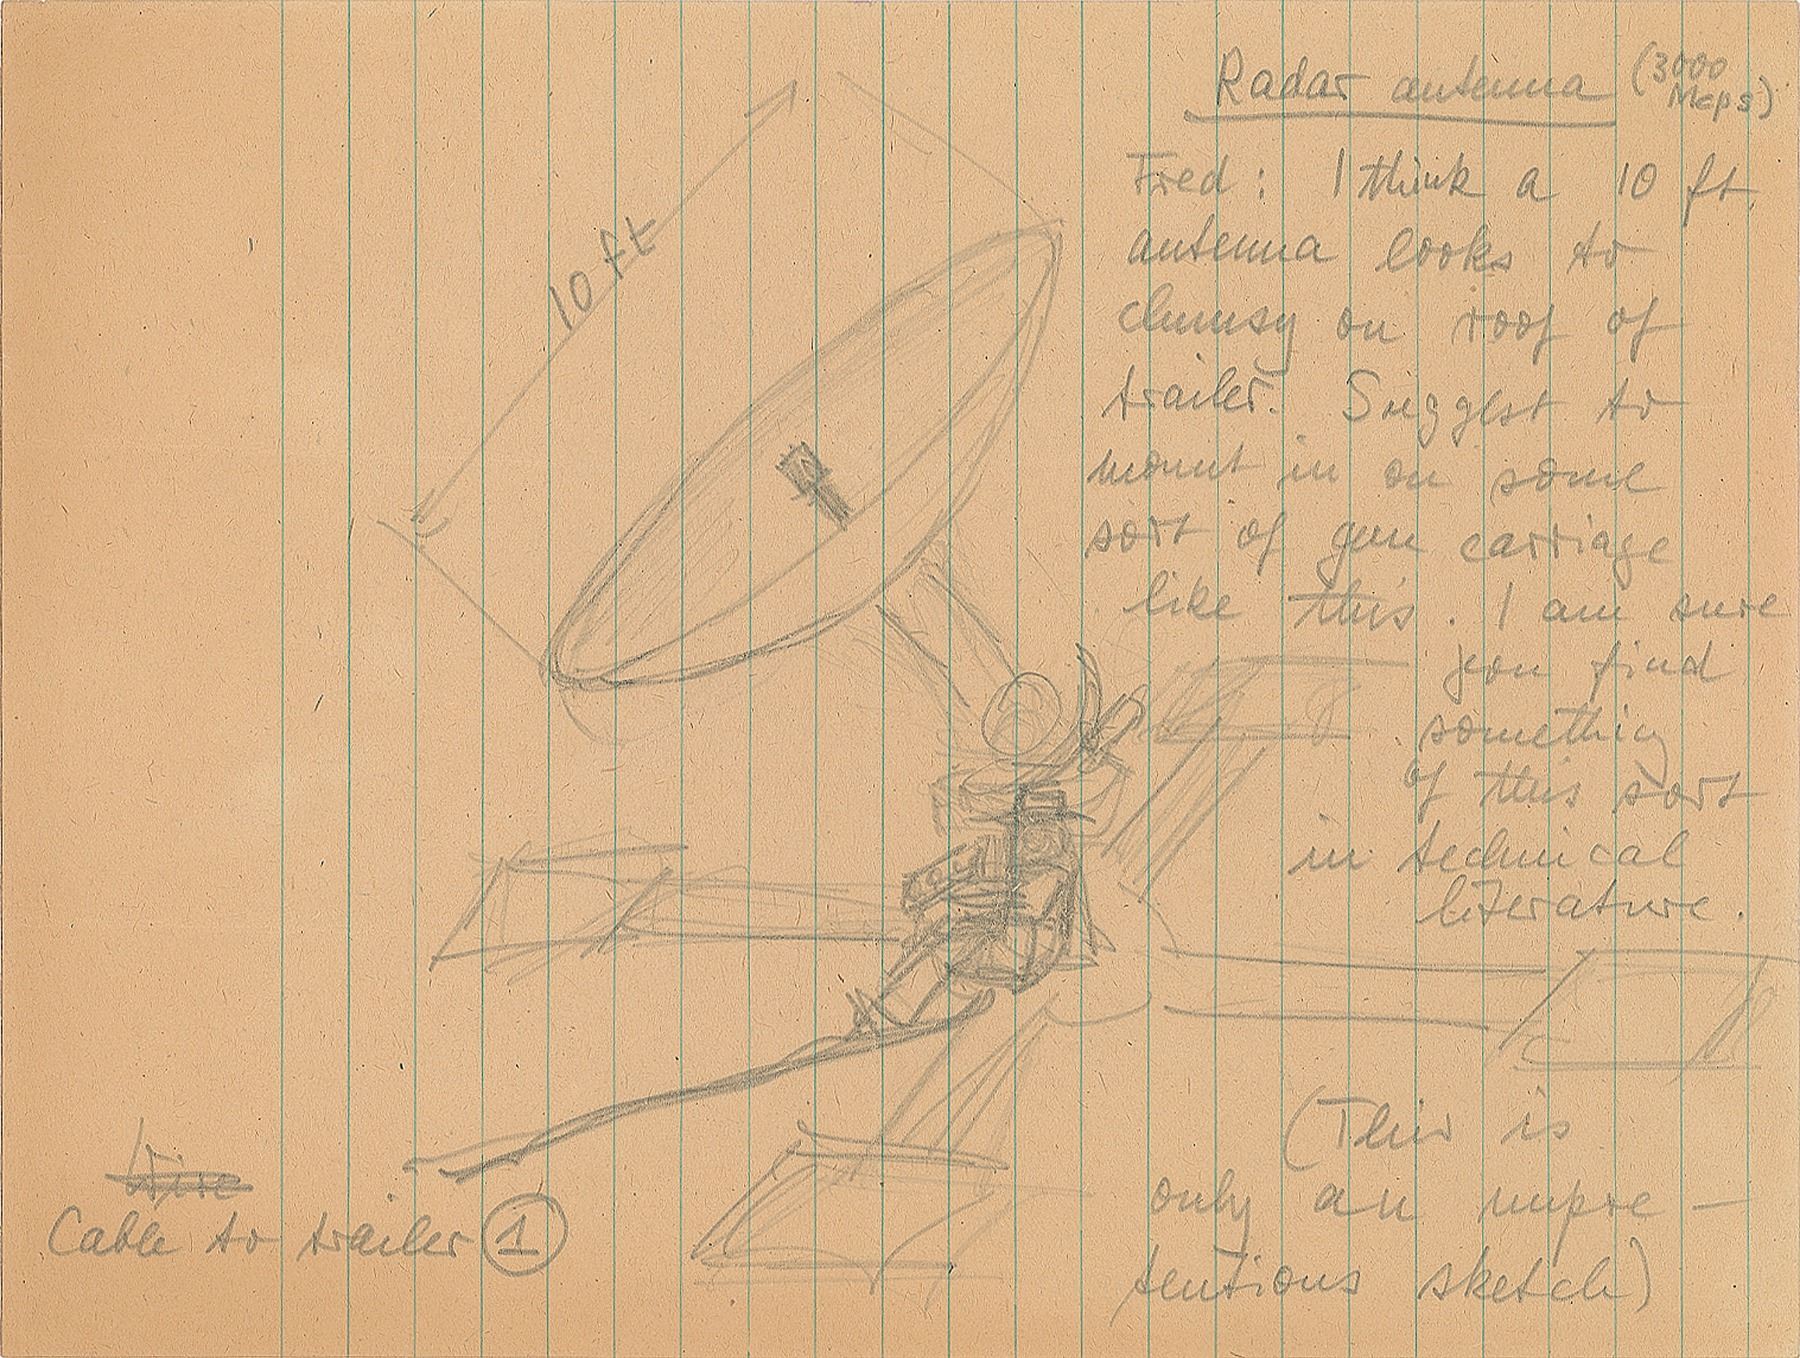 Radar antenna (3000
Mcps)
Fred: I think a 10 ft
antenna looks to
clumsy on roof of
trailer. Suggest to
mount in on some
sort of gun carriage
like this. I am sure
you find
something
of this sort
in technical
literature.
10 ft
(This is
only an unpre-
tentious sketch)
Wire
Cable to trailer 1